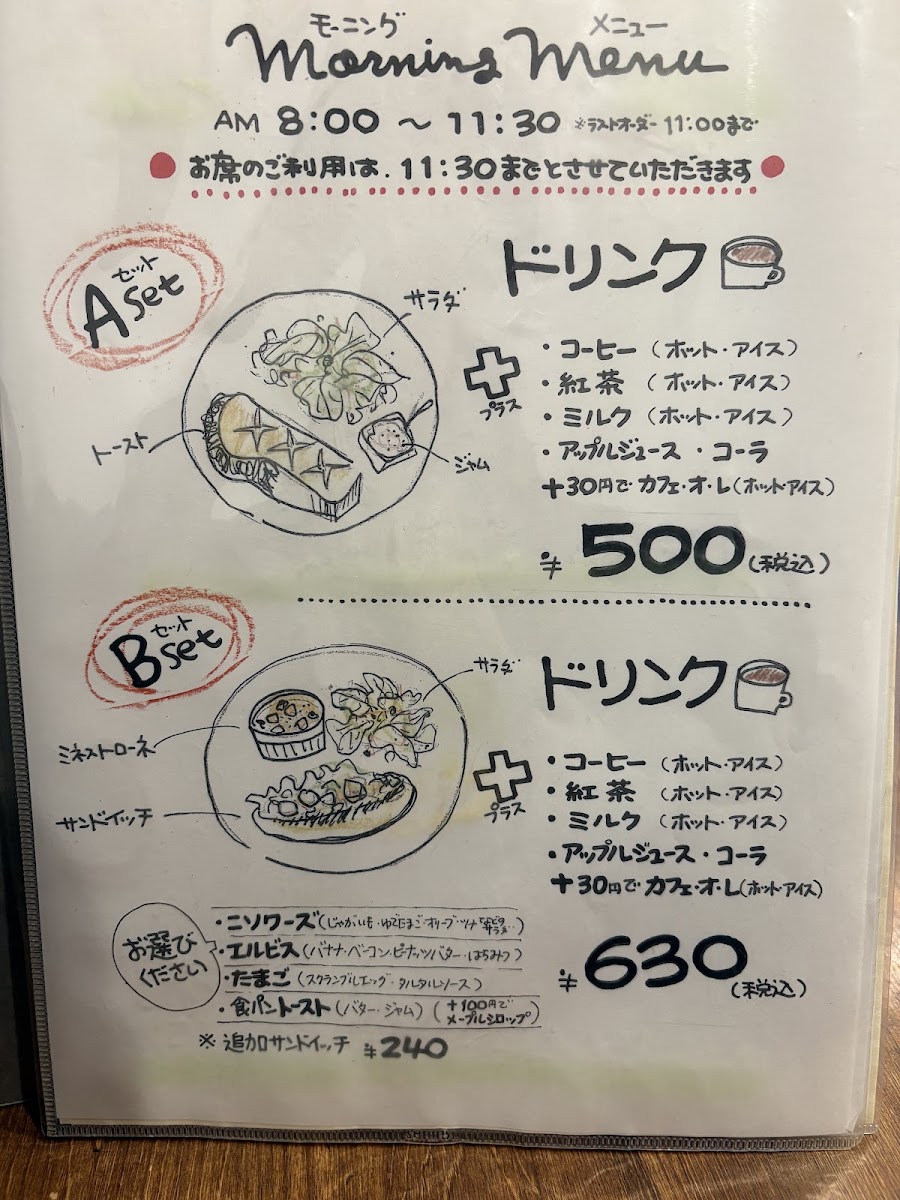 モーニング メニュー
Morning Menu
AM 8:00 〜 11:30 ※ラストオーダー 11:00まで
お席のご利用は、11:30までとさせていただきます
セット
A set
サラダ
トースト
ジャム
プラス
ドリンク
・コーヒー (ホット・アイス)
・紅茶 (ホット・アイス)
・ミルク (ホット・アイス)
・アップルジュース ・コーラ
+30円で カフェ・オ・レ(ホット・アイス)
¥500(税込)
セット
B set
サラダ
ミネストローネ
サンドイッチ
プラス
ドリンク
・コーヒー (ホット・アイス)
・紅茶 (ホット・アイス)
・ミルク (ホット・アイス)
・アップルジュース・コーラ
+30円で カフェ・オ・レ(ホット・アイス)
¥630(税込)
お選びください
・ニソワーズ(じゃがいも・ゆでたまご・オリーブ・ツナ
・エルビス(バナナ・ベーコン・ピーナッツバター・はちみつ)
・たまご(スクランブルエッグ・タルタルソース)
・食パントースト(バター・ジャム)(+100円でメープルシロップ)
※ 追加サンドイッチ ¥240